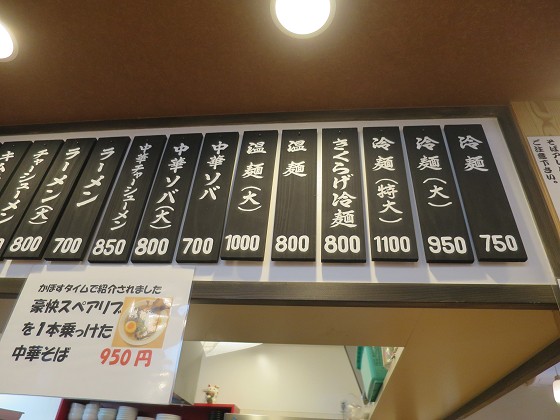 冷麺 750
冷麺（大） 950
冷麺（特大） 1100
きくらげ冷麺 800
温麺 800
温麺（大） 1000
中華ソバ 700
中華ソバ（大） 800
中華チャーシューメン 850
ラーメン 700
ラーメン（大） 800
チャーシューメン
かぼすタイムで紹介されました
豪快スペアリブ
を1本乗っけた
中華そば 950円
ご注意下さい。